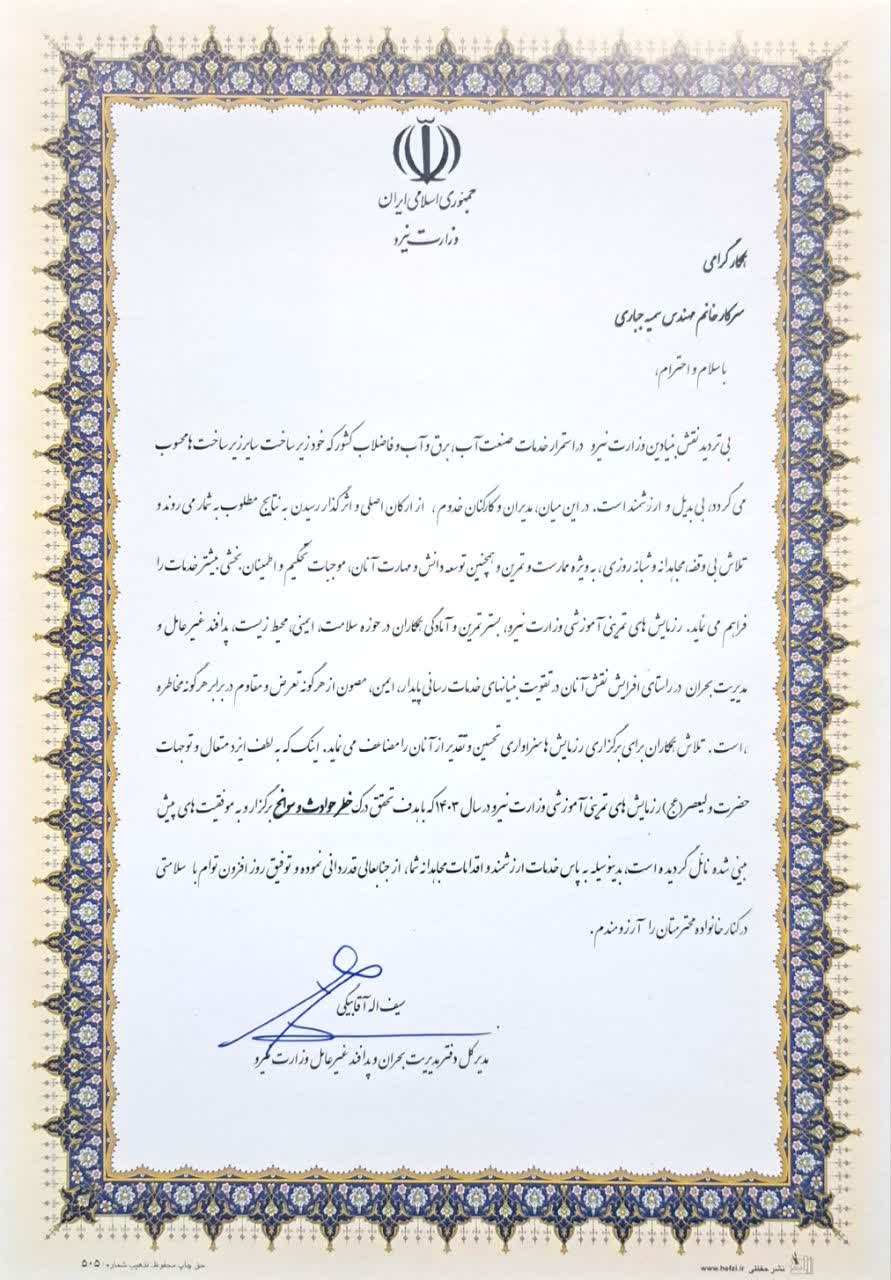 جمهوری اسلامی ایران
وزارت نیرو
همکار گرامی
سرکار خانم مهندس سمیه جباری
با سلام و احترام،
بی تردید نقش بنیادین وزارت نیرو در استمرار خدمات صنعت آب، برق و آب و فاضلاب کشور که خود زیر ساخت سایر زیر ساخت ها محسوب
می گردد، بی بدیل و ارزشمند است. در این میان، مدیران و کارکنان خدوم، از ارکان اصلی و اثر گذار رسیدن به نتایج مطلوب به شمار می روند و
تلاش بی وقفه، مجاهدانه و شبانه روزی، به ویژه ممارست و تمرین و همچنین توسعه دانش و مهارت آنان، موجبات تحکیم و اطمینان بخشی بیشتر خدمات را
فراهم می نماید. رزمایش های تمرینی آموزشی وزارت نیرو، بستر تمرین و آمادگی همکاران در حوزه سلامت، ایمنی، محیط زیست، پدافند غیر عامل و
مدیریت بحران در راستای افزایش نقش آنان در تقویت بنیانهای خدمات رسانی پایدار، ایمن، مصون از هر گونه تعرض و مقاوم در برابر هر گونه مخاطره
،است. تلاش همکاران برای برگزاری رزمایش ها سزاواری تحسین و تقدیر از آنان را مضاعف می نماید. اینک که به لطف ایزد متعال و توجهات
حضرت ولیعصر (عج) رزمایش های تمرینی آموزشی وزارت نیرو در سال ۱۴۰۳ که با هدف تحقق درک خطر حوادث و سوانح برگزار و به موفقیت های پیش
بینی شده نائل گردیده است، بدینوسیله به پاس خدمات ارزشمند و اقدامات مجاهدانه شما، از جنابعالی قدردانی نموده و توفیق روز افزون توام با سلامتی
در کنار خانواده محترمتان را آرزومندم.
سیف اله آقابیگی
مدیر کل دفتر مدیریت بحران و پدافند غیر عامل وزارت نیرو
حق چاپ محفوظ. تذهیب شماره: ۵۰۵
نشر حفظی www.hefzi.ir